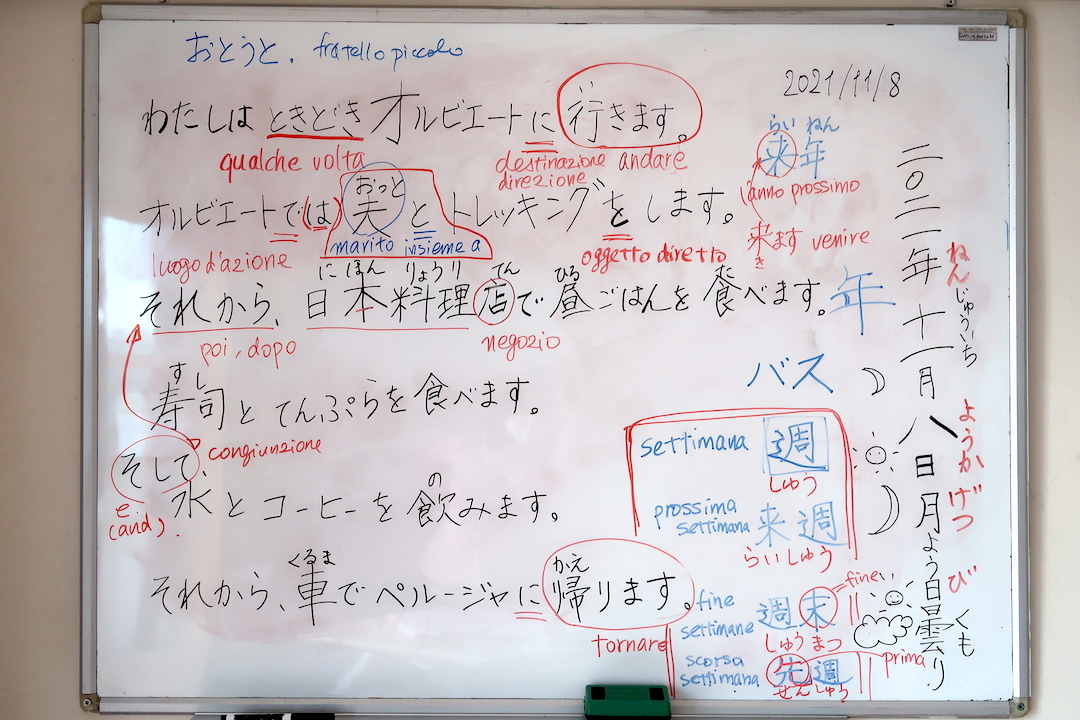 おとうと. fratello piccolo
2021/11/8
わたしは ときどき オルビエートに 行きます。
qualche volta
destinazione
direzione
andare
らい ねん
来年
l'anno prossimo
来ます venire
き
おっと
オルビエートで(は) 夫 と トレッキングを します。
luogo d'azione
marito insieme a
oggetto diretto
に ほん りょう り てん ひる た
それから、日本料理店で 昼ごはんを 食べます。
年
poi, dopo
negozio
す し
寿司と てんぷらを 食べます。
congiunzione
そして、
e
(and).
の
水と コーヒーを 飲みます。
くるま かえ
それから、車で ペルージャに 帰ります。
tornare
バス
settimana 週
しゅう
prossima
settimana
来週
らいしゅう
fine
settimane
週末
= fine
しゅう まつ
scorsa
settimana
先週
prima
せんしゅう
二〇二一年十一月八日月よう日曇り
ねん じゅういち ようか げつ び くもり